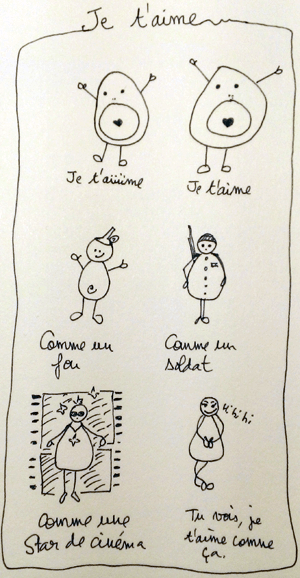 Je t'aime
Je t'aiiime
Je t'aime
Comme un
fou
Comme un
soldat
Hi hi hi
Comme une
Star de cinéma
Tu vois, je
t'aime comme
ça.